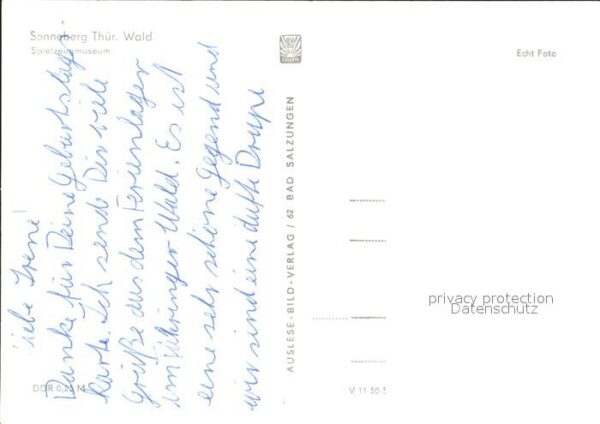 Sonneberg Thür. Wald
Spielzeugmuseum
Echt Foto
Liebe Irene!
Danke für Deine Geburtstags-
karte. Ich sende Dir viele
Grüße aus dem Ferienlager
im Thüringer Wald. Es ist
eine sehr schöne Gegend und
wir sind eine dufte Druppe
AUSLESE-BILD-VERLAG / 62 BAD SALZUNGEN
privacy protection
Datenschutz
DDR 0,25 M
V 11 50